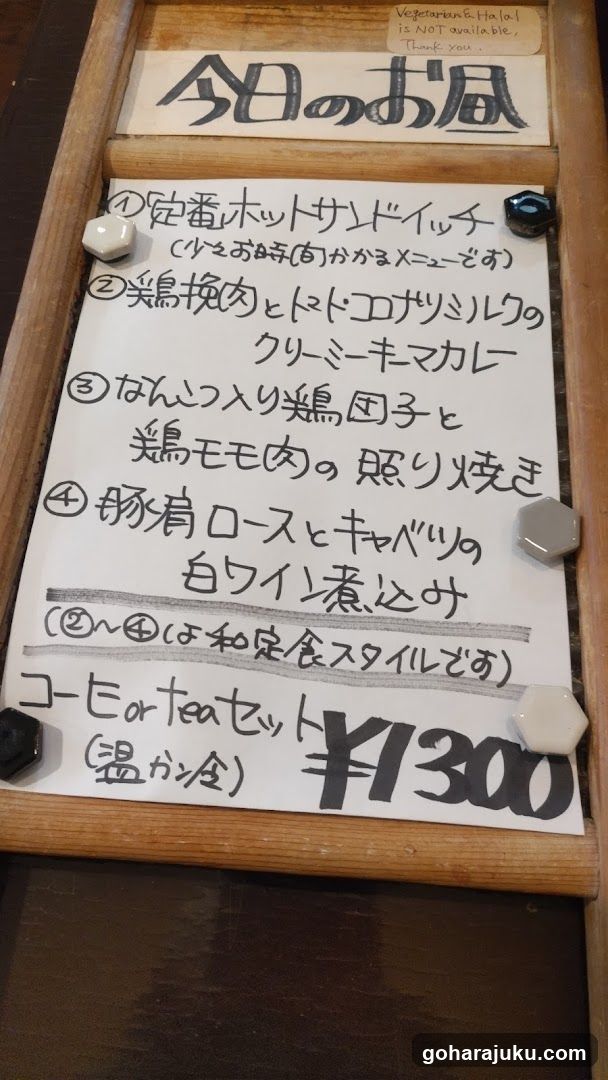 Vegetarian & Halal
is NOT available,
Thank you.
今日のお昼
①「定番」ホットサンドイッチ
(少々お時間かかるメニューです)
②鶏挽肉とトマト・ココナツミルクの
クリーミーキーマカレー
③なんこつ入り鶏団子と
鶏モモ肉の照り焼き
④豚肩ロースとキャベツの
白ワイン煮込み
(②〜④は和定食スタイルです)
コーヒーor teaセット
(温か冷)
¥1300
goharajuku.com